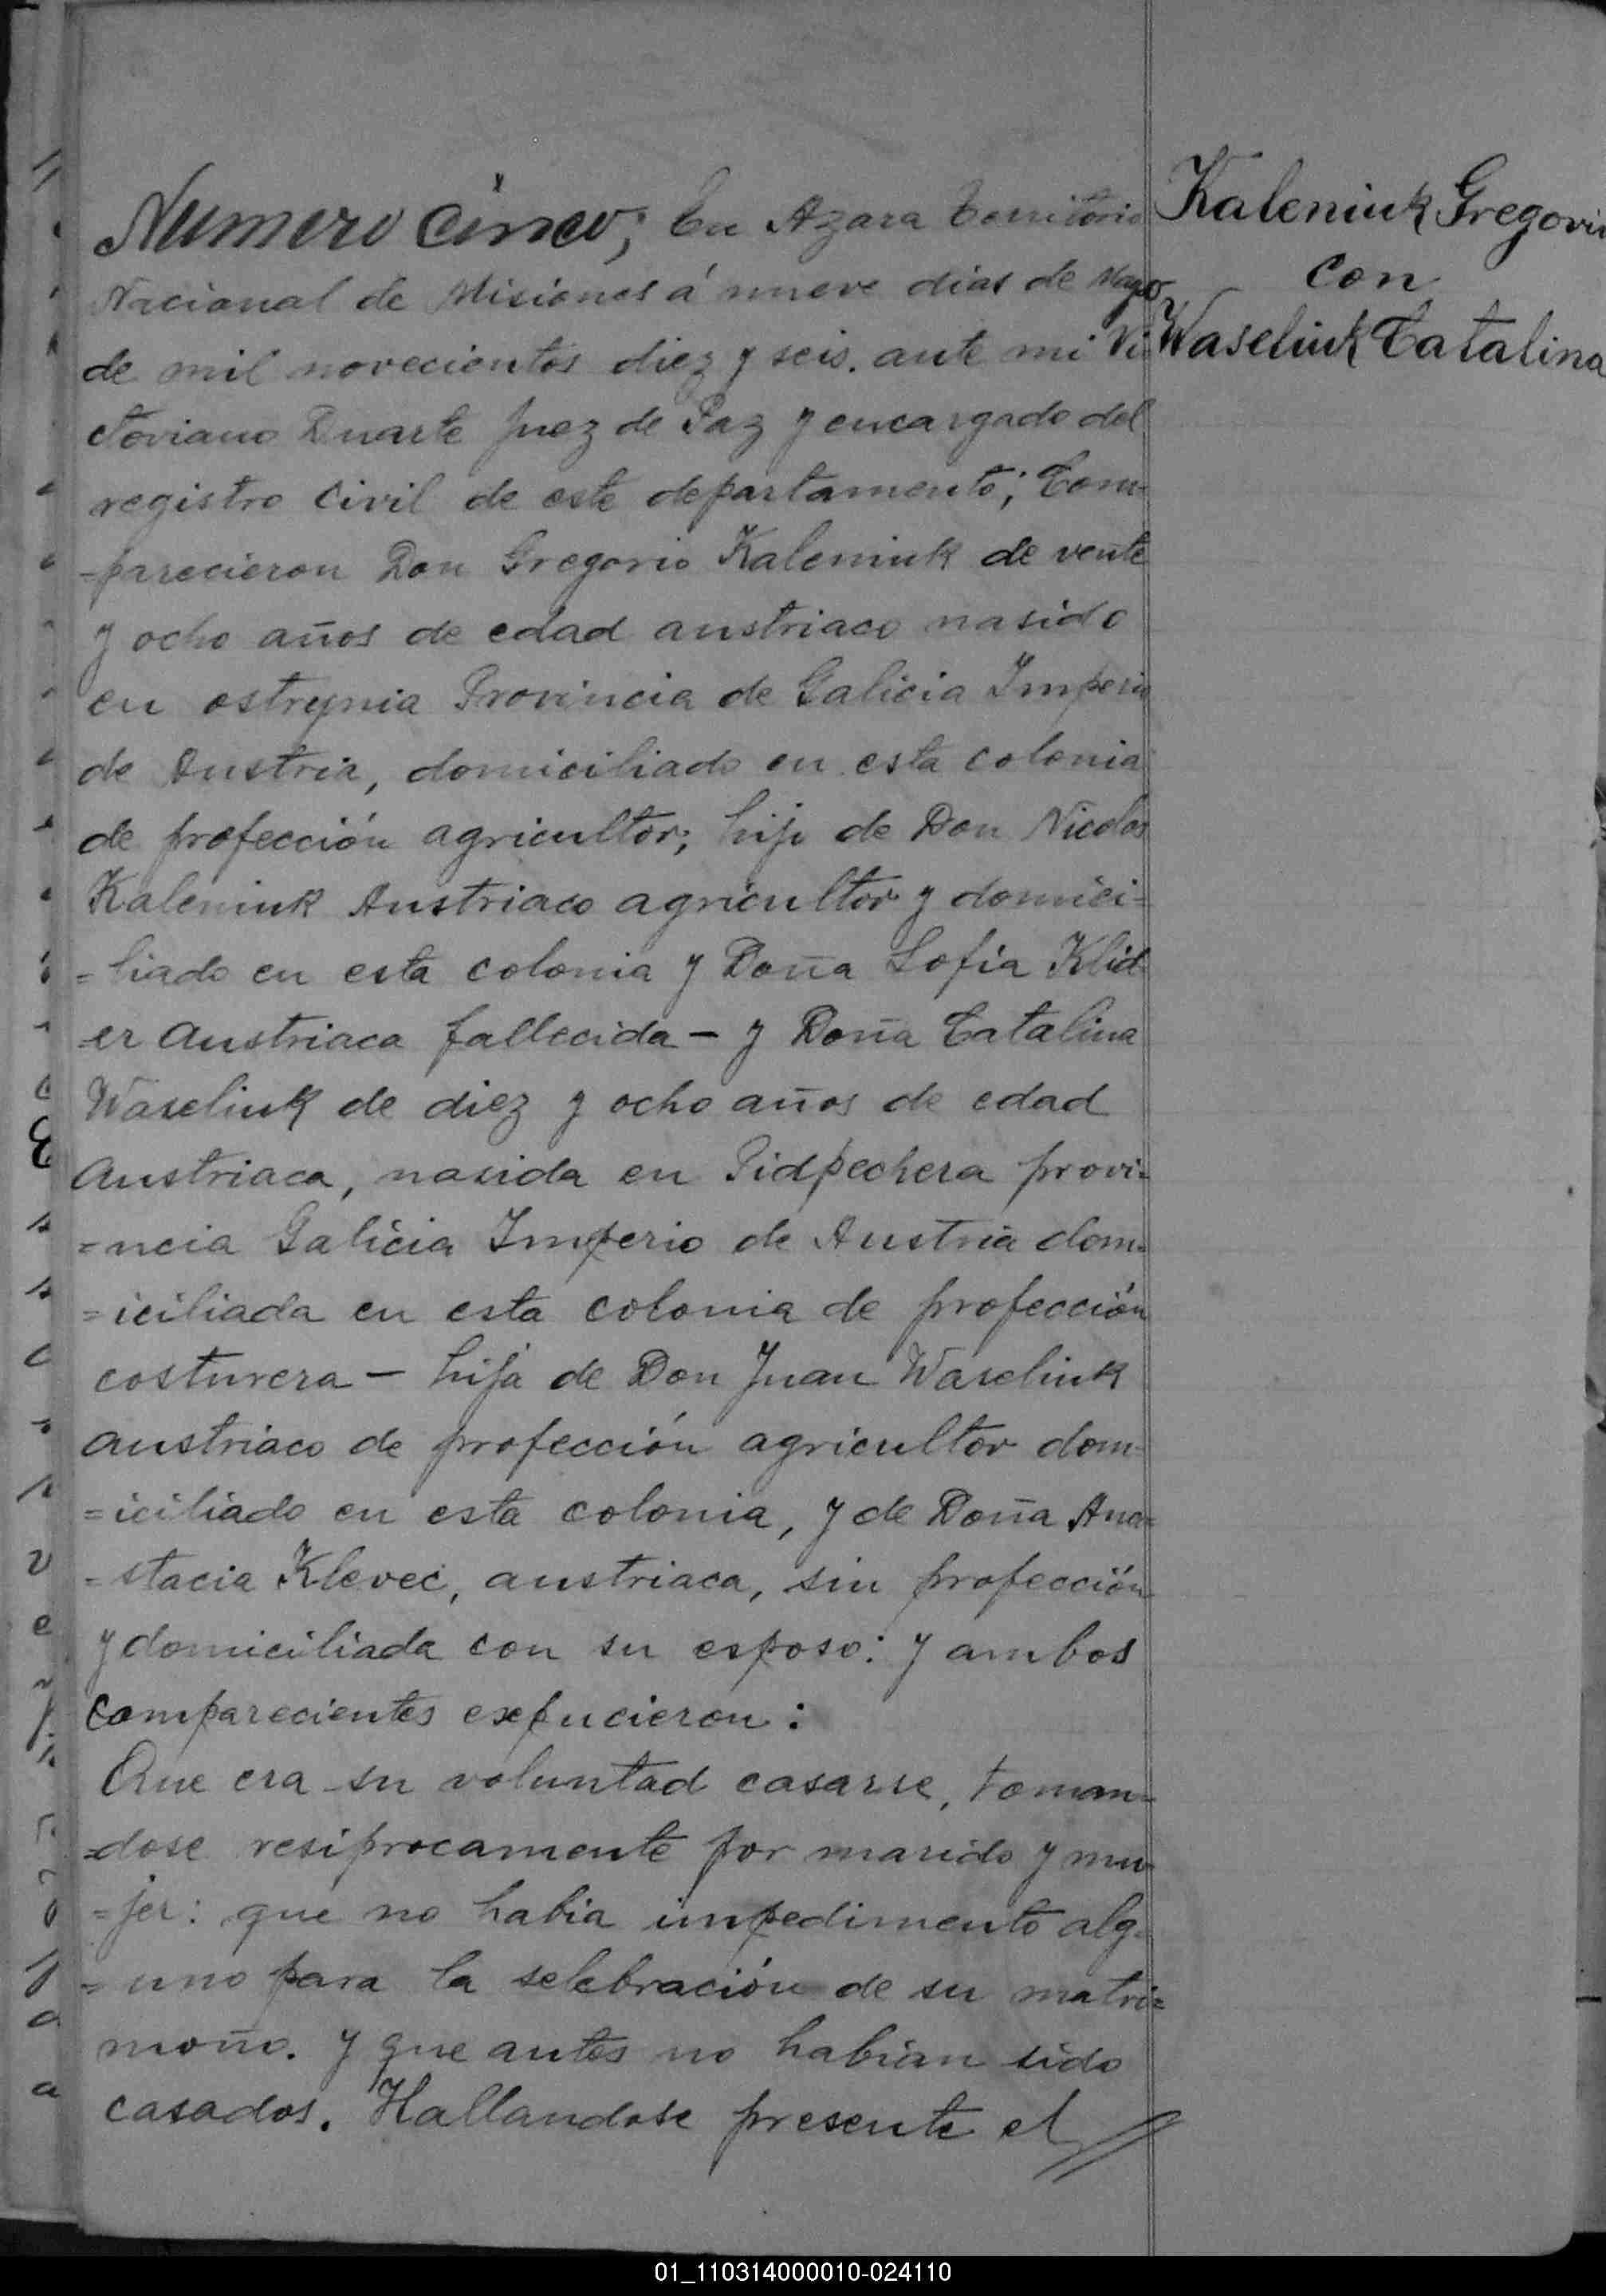 Numero cinco; En Azara Territorio
Nacional de Misiones á nueve dias de Mayo
de mil novecientos diez y seis. ante mi Vi
ctoriano Duarte Juez de Paz y encargado del
registro Civil de este departamento; Com-
-parecieron Don Gregorio Kaleniuk de vente
y ocho años de edad austriaco nasido
en ostrynia Provincia de Galicia Imperio
de Austria, domiciliado en esta colonia
de profección agricultor; hijo de Don Nicolas
Kaleniuk Austriaco agricultor y domici=
=liado en esta colonia y Doña Sofia Klid-
-er Austriaca fallecida - y Doña Catalina
Waseliuk de diez y ocho años de edad
Austriaca, nasida en Pidpechera provi=
=ncia Galicia Imperio de Austria dom=
=iciliada en esta colonia de profección
costurera - hija de Don Juan Waseliuk
austriaco de profección agricultor dom-
=iciliado en esta colonia, y de Doña Ana=
-stacia Klevec, austriaca, sin profección
y domiciliada con su esposo: y ambos
comparecientes expucieron:
Que era su voluntad casarse, toman=
=dose resiprocamente por marido y mu-
=jer: que no habia impedimento alg-
=uno para la selebración de su matri=
moño. y que antes no habian sido
casados. Hallandose presente el //
Kaleniuk Gregorio
con
Waseliuk Catalina
01_110314000010-024110